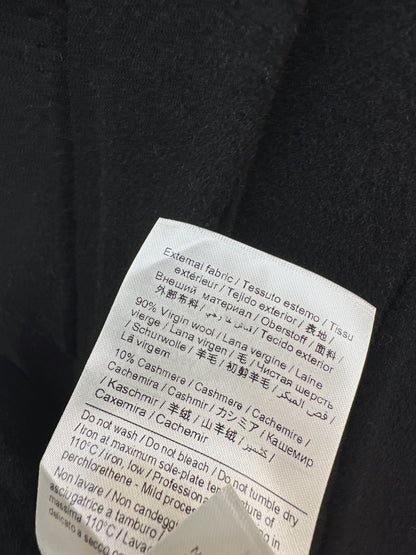 External fabric / Tessuto esterno / Tissu
extérieur / Tejido exterior / 表地 /
Внешний материал / Oberstoff / 面料 /
外部布料 / Tecido exterior
90% Virgin wool / Lana vergine / Laine
vierge / Lana virgen / 毛 / Чистая шерсть
/ Schurwolle / 羊毛 / 初剪羊毛 /
Lã virgem
10% Cashmere / Cashmere / Cachemire /
Cachemira / Cashmir / カシミア / Кашемир
/ Kaschmir / 羊绒 / 山羊絨 / كشمير /
Caxemira / Cachemir
Do not wash / Do not bleach / Do not tumble dry
/ Iron at maximum sole-plate temperature of
110°C / Iron, low / Professional
perchlorethene - Mild proce
Non lavare / Non candegg
asciugatrice a tamburo
massima 110°C / Lava
delicato a secco